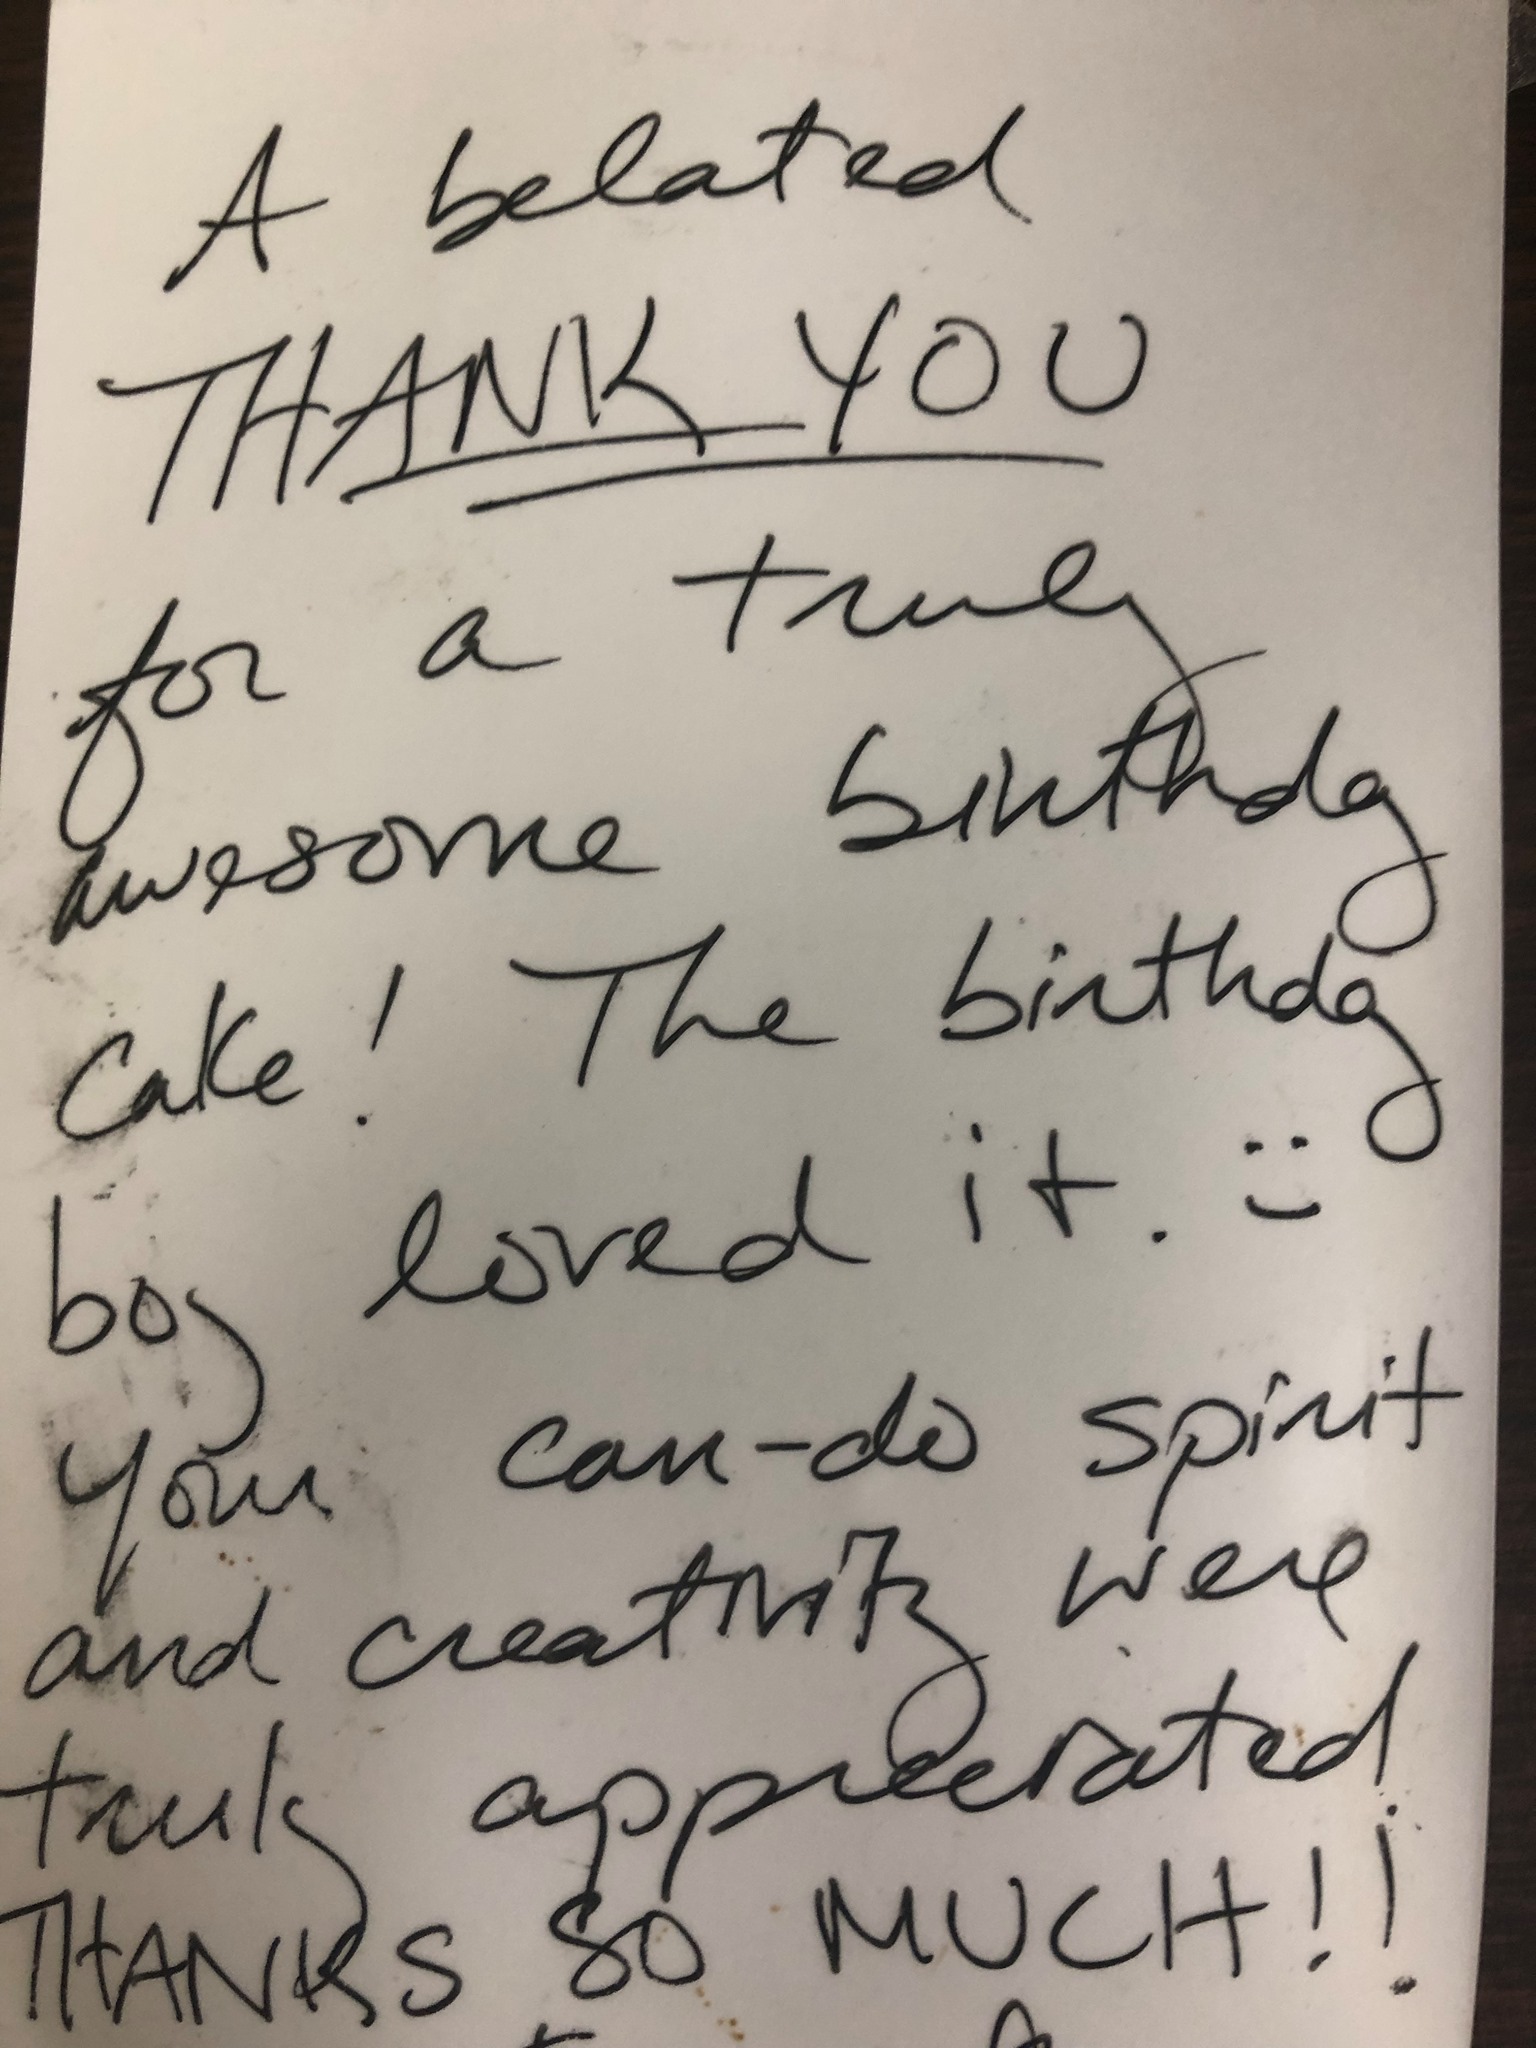 A belated
THANK YOU
for a truly
awesome birthday
cake! The birthday
boy loved it. :)
Your can-do spirit
and creativity were
truly appreciated!
THANKS SO MUCH!!